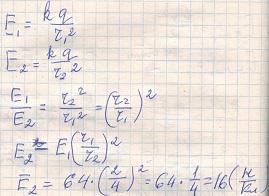 E₁ = kq/r₁²
E₂ = kq/r₂²
E₁/E₂ = r₂²/r₁² = (r₂/r₁)²
E₂ = E₁(r₁/r₂)²
E₂ = 64·(2/4)² = 64·1/4 = 16(Н/Кл